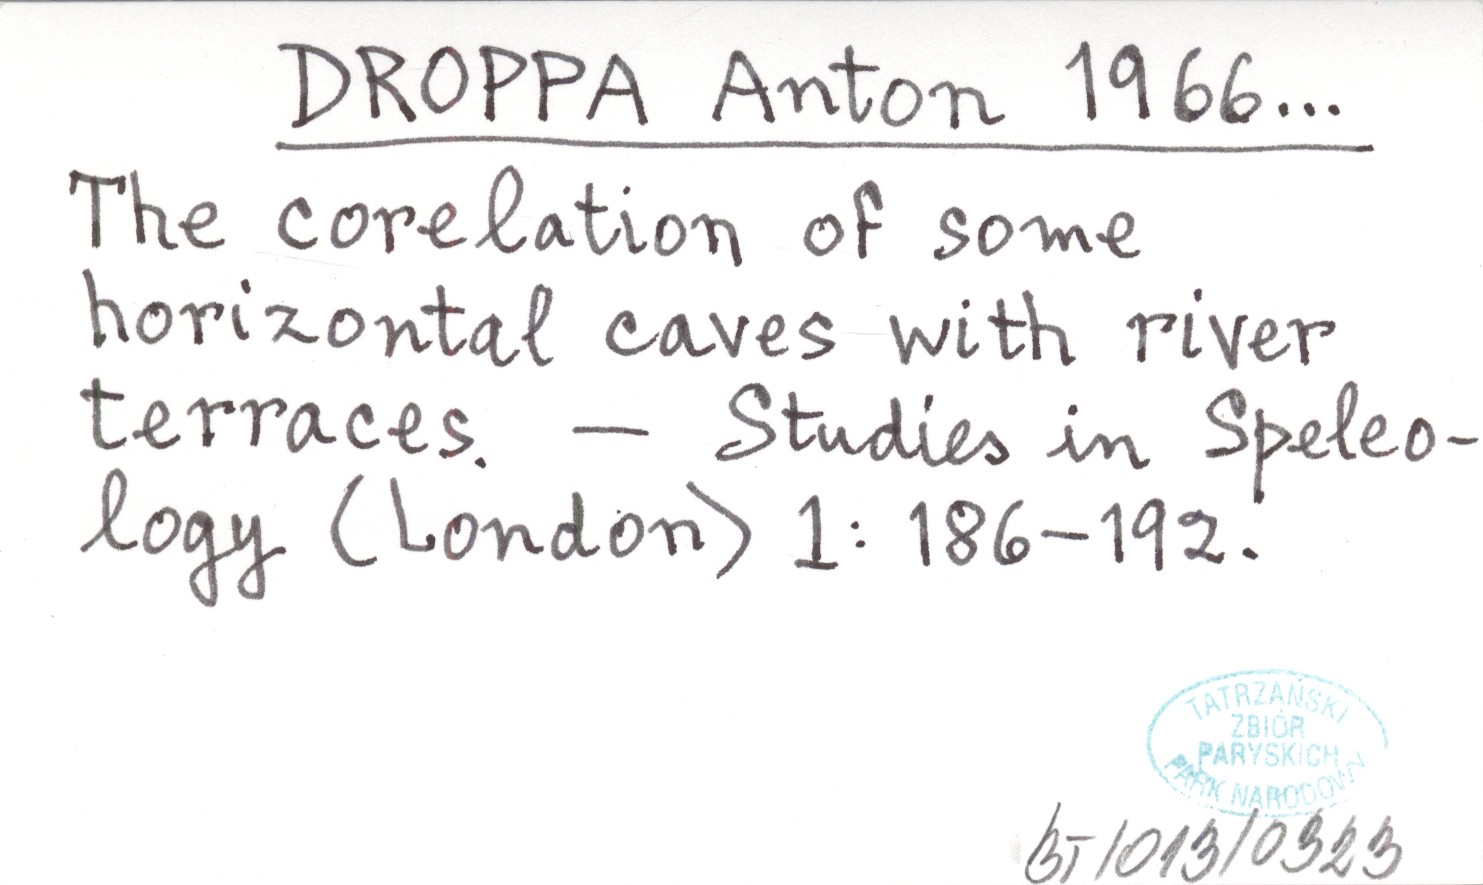 DROPPA Anton 1966...
The corelation of some
horizontal caves with river
terraces. — Studies in Speleo-
logy (London) 1: 186–192.
TATRZAŃSKI
ZBIÓR
PARYSKICH
PARK NARODOWY
BT/013/0323